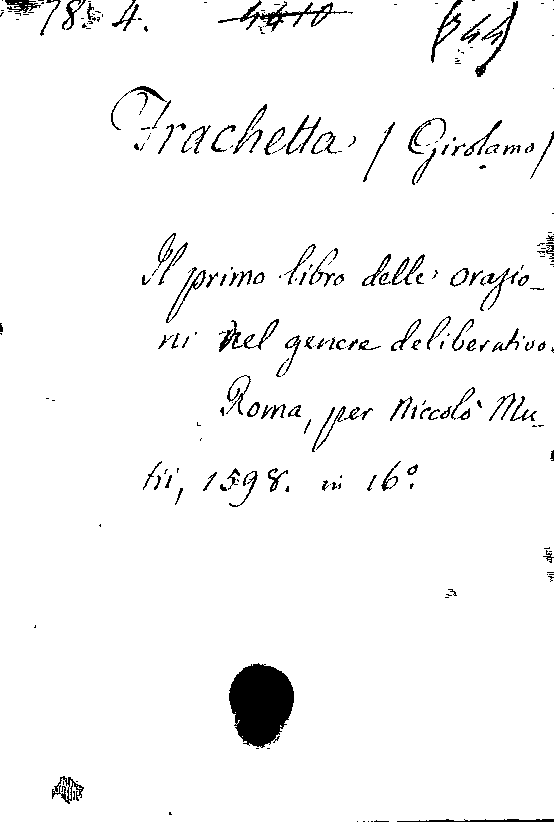 78. 4. 4410 (344)
Frachetta / Girolamo /
Il primo libro delle orazio_
ni nel genere deliberativo.
Roma, per Niccolò Mu_
tii, 1598. in 16º.